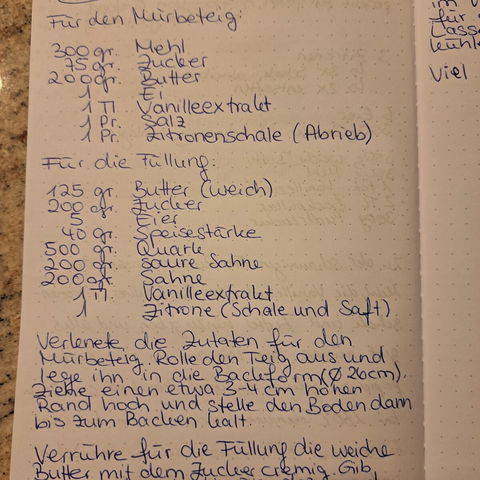 Für den Mürbeteig:
300 gr. Mehl
75 gr. Zucker
200 gr. Butter
1 Ei
1 Tl. Vanilleextrakt
1 Pr. Salz
1 Pr. Zitronenschale (Abrieb)
Für die Füllung:
125 gr. Butter (weich)
200 gr. Zucker
5 Eier
40 gr. Speisestärke
500 gr. Quark
200 gr. saure Sahne
200 gr. Sahne
1 Tl. Vanilleextrakt
1 Zitrone (Schale und Saft)
Verknete die Zutaten für den
Mürbeteig. Rolle den Teig aus und
lege ihn in die Backform (Ø 26cm).
Ziehe einen etwa 3-4 cm hohen
Rand hoch und stelle den Boden dann
bis zum Backen kalt.
Verrühre für die Füllung die weiche
Butter mit dem Zucker cremig. Gib
im
für
Lasse
kühle
Viel